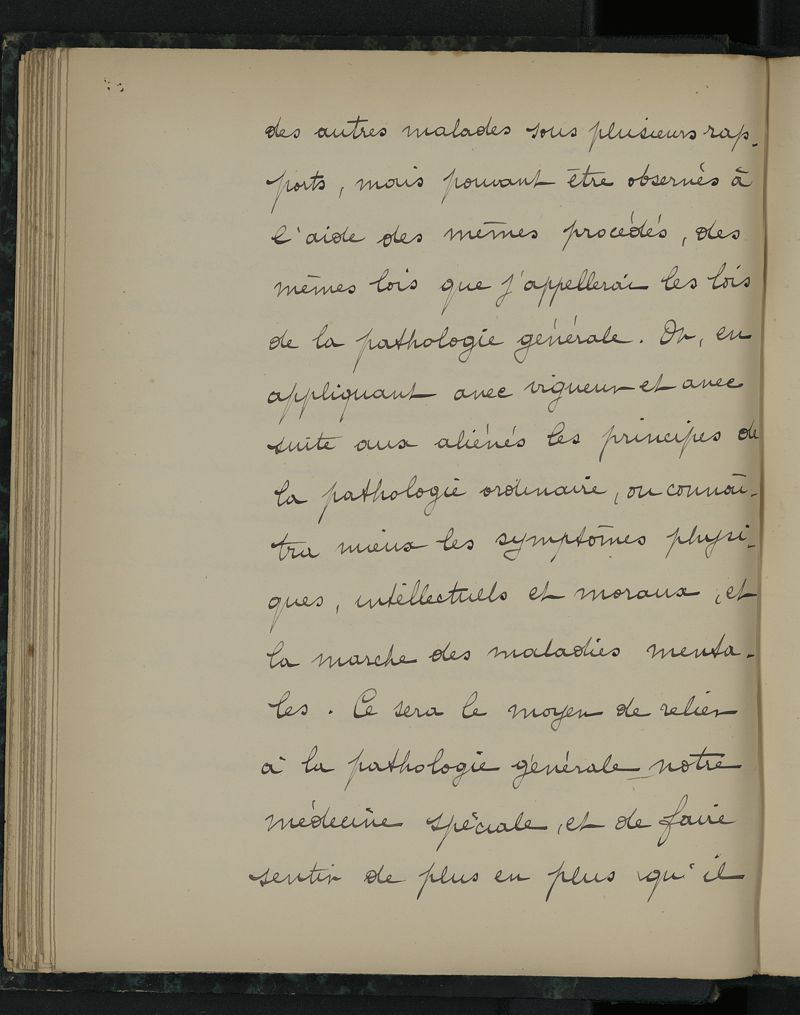 des autres malades sous plusieurs rap-
ports, mais pouvant être observés à
l'aide des mêmes procédés, des
mêmes lois que j'appellerai les lois
de la pathologie générale. Or, en
appliquant avec vigueur et avec
suite aux aliénés les principes de
la pathologie ordinaire, on connaî-
tra mieux les symptômes physi-
ques, intellectuels et moraux, et
la marche des maladies menta-
les. Ce sera le moyen de relier
à la pathologie générale notre
médecine spéciale, et de faire
sentir de plus en plus qu'il